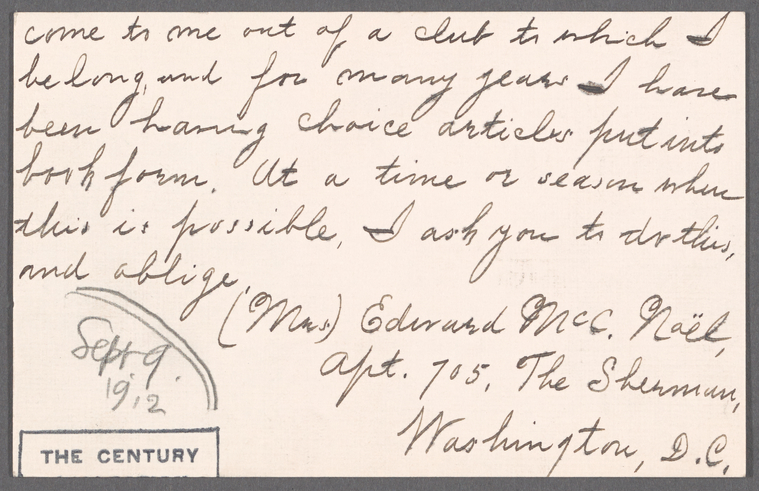 come to me out of a club to which I
belong, and for many years I have
been having choice articles put into
book form. At a time or season when
this is possible, I ask you to do this,
and oblige,
(Mrs.) Edward McC. Noël,
Apt. 705, The Sherman,
Washington, D.C.
Sept 9.
1912
THE CENTURY